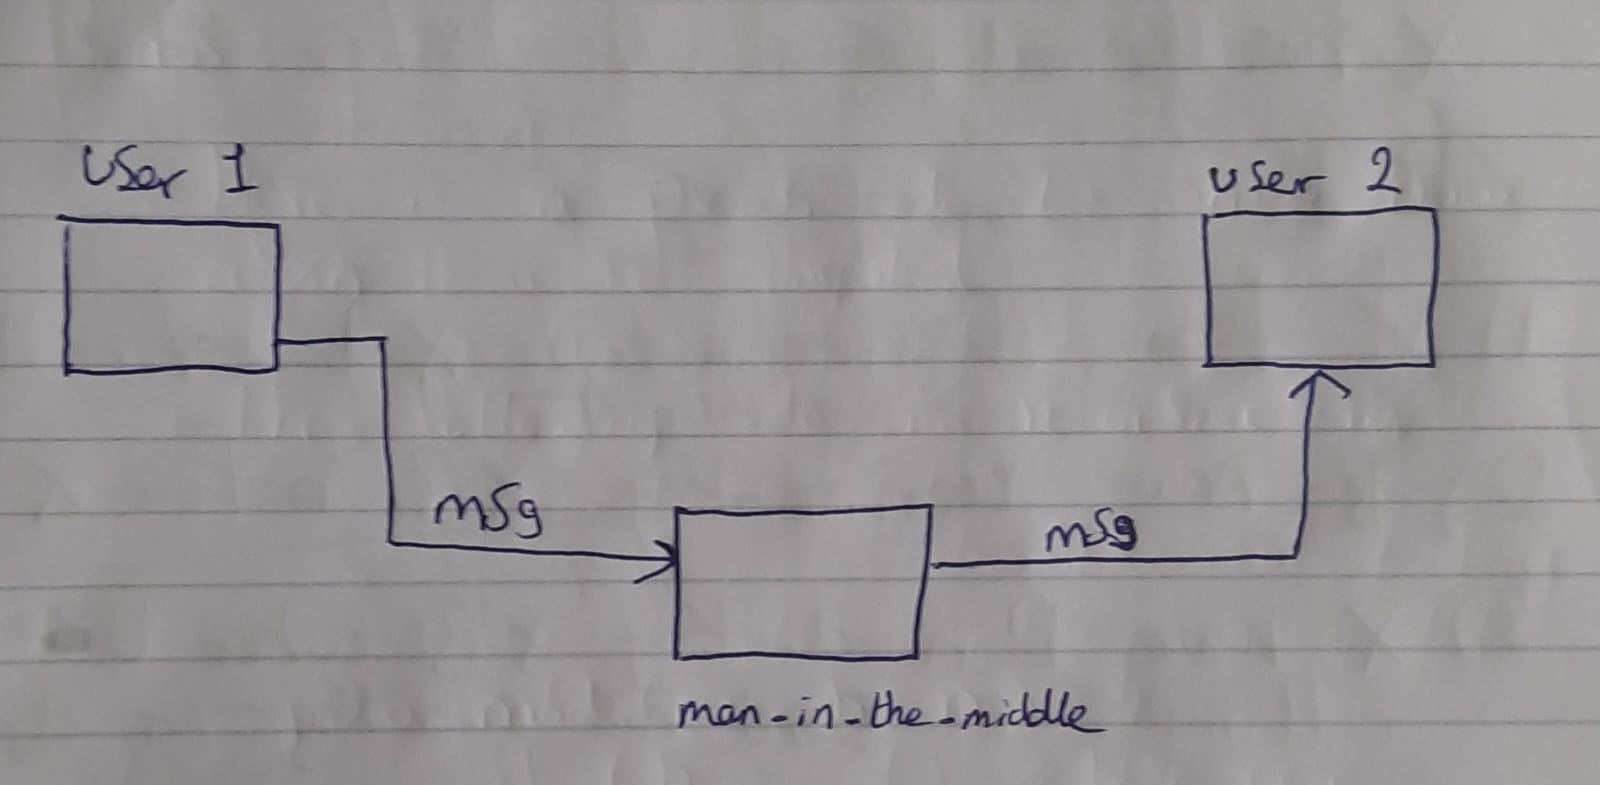 User 1
user 2
msg
msg
man-in-the-middle